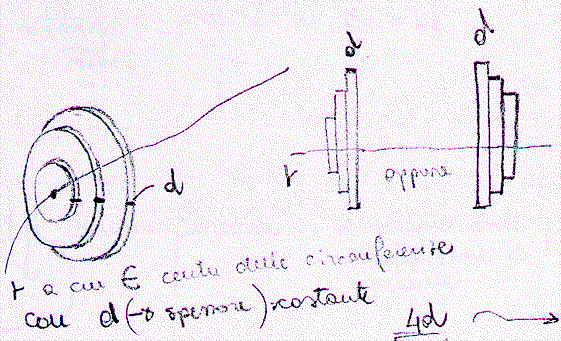 d d
d
r oppure
r a cui ∈ centri delle circonferenze
con d (→ spessore) costante
4d